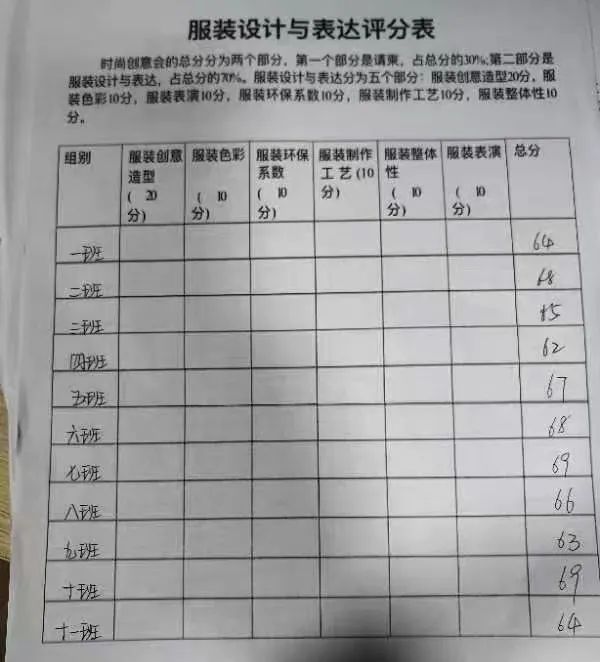 服装设计与表达评分表
时尚创意会的总分分为两个部分，第一个部分是请柬，占总分的30%;第二部分是
服装设计与表达，占总分的70%。服装设计与表达分为五个部分：服装创意造型20分，服
装色彩10分，服装表演10分，服装环保系数10分，服装制作工艺10分，服装整体性10
分。
组别 服装创意造型 ( 20 分) 服装色彩 ( 10 分) 服装环保系数 ( 10 分) 服装制作工 艺 (10 分) 服装整体性 ( 10 分) 服装表演 ( 10 分) 总分
一班 64
二班 68
三班
四班 62
五班 67
六班 68
七班 69
八班 66
九班 63
十班 69
十一班 64